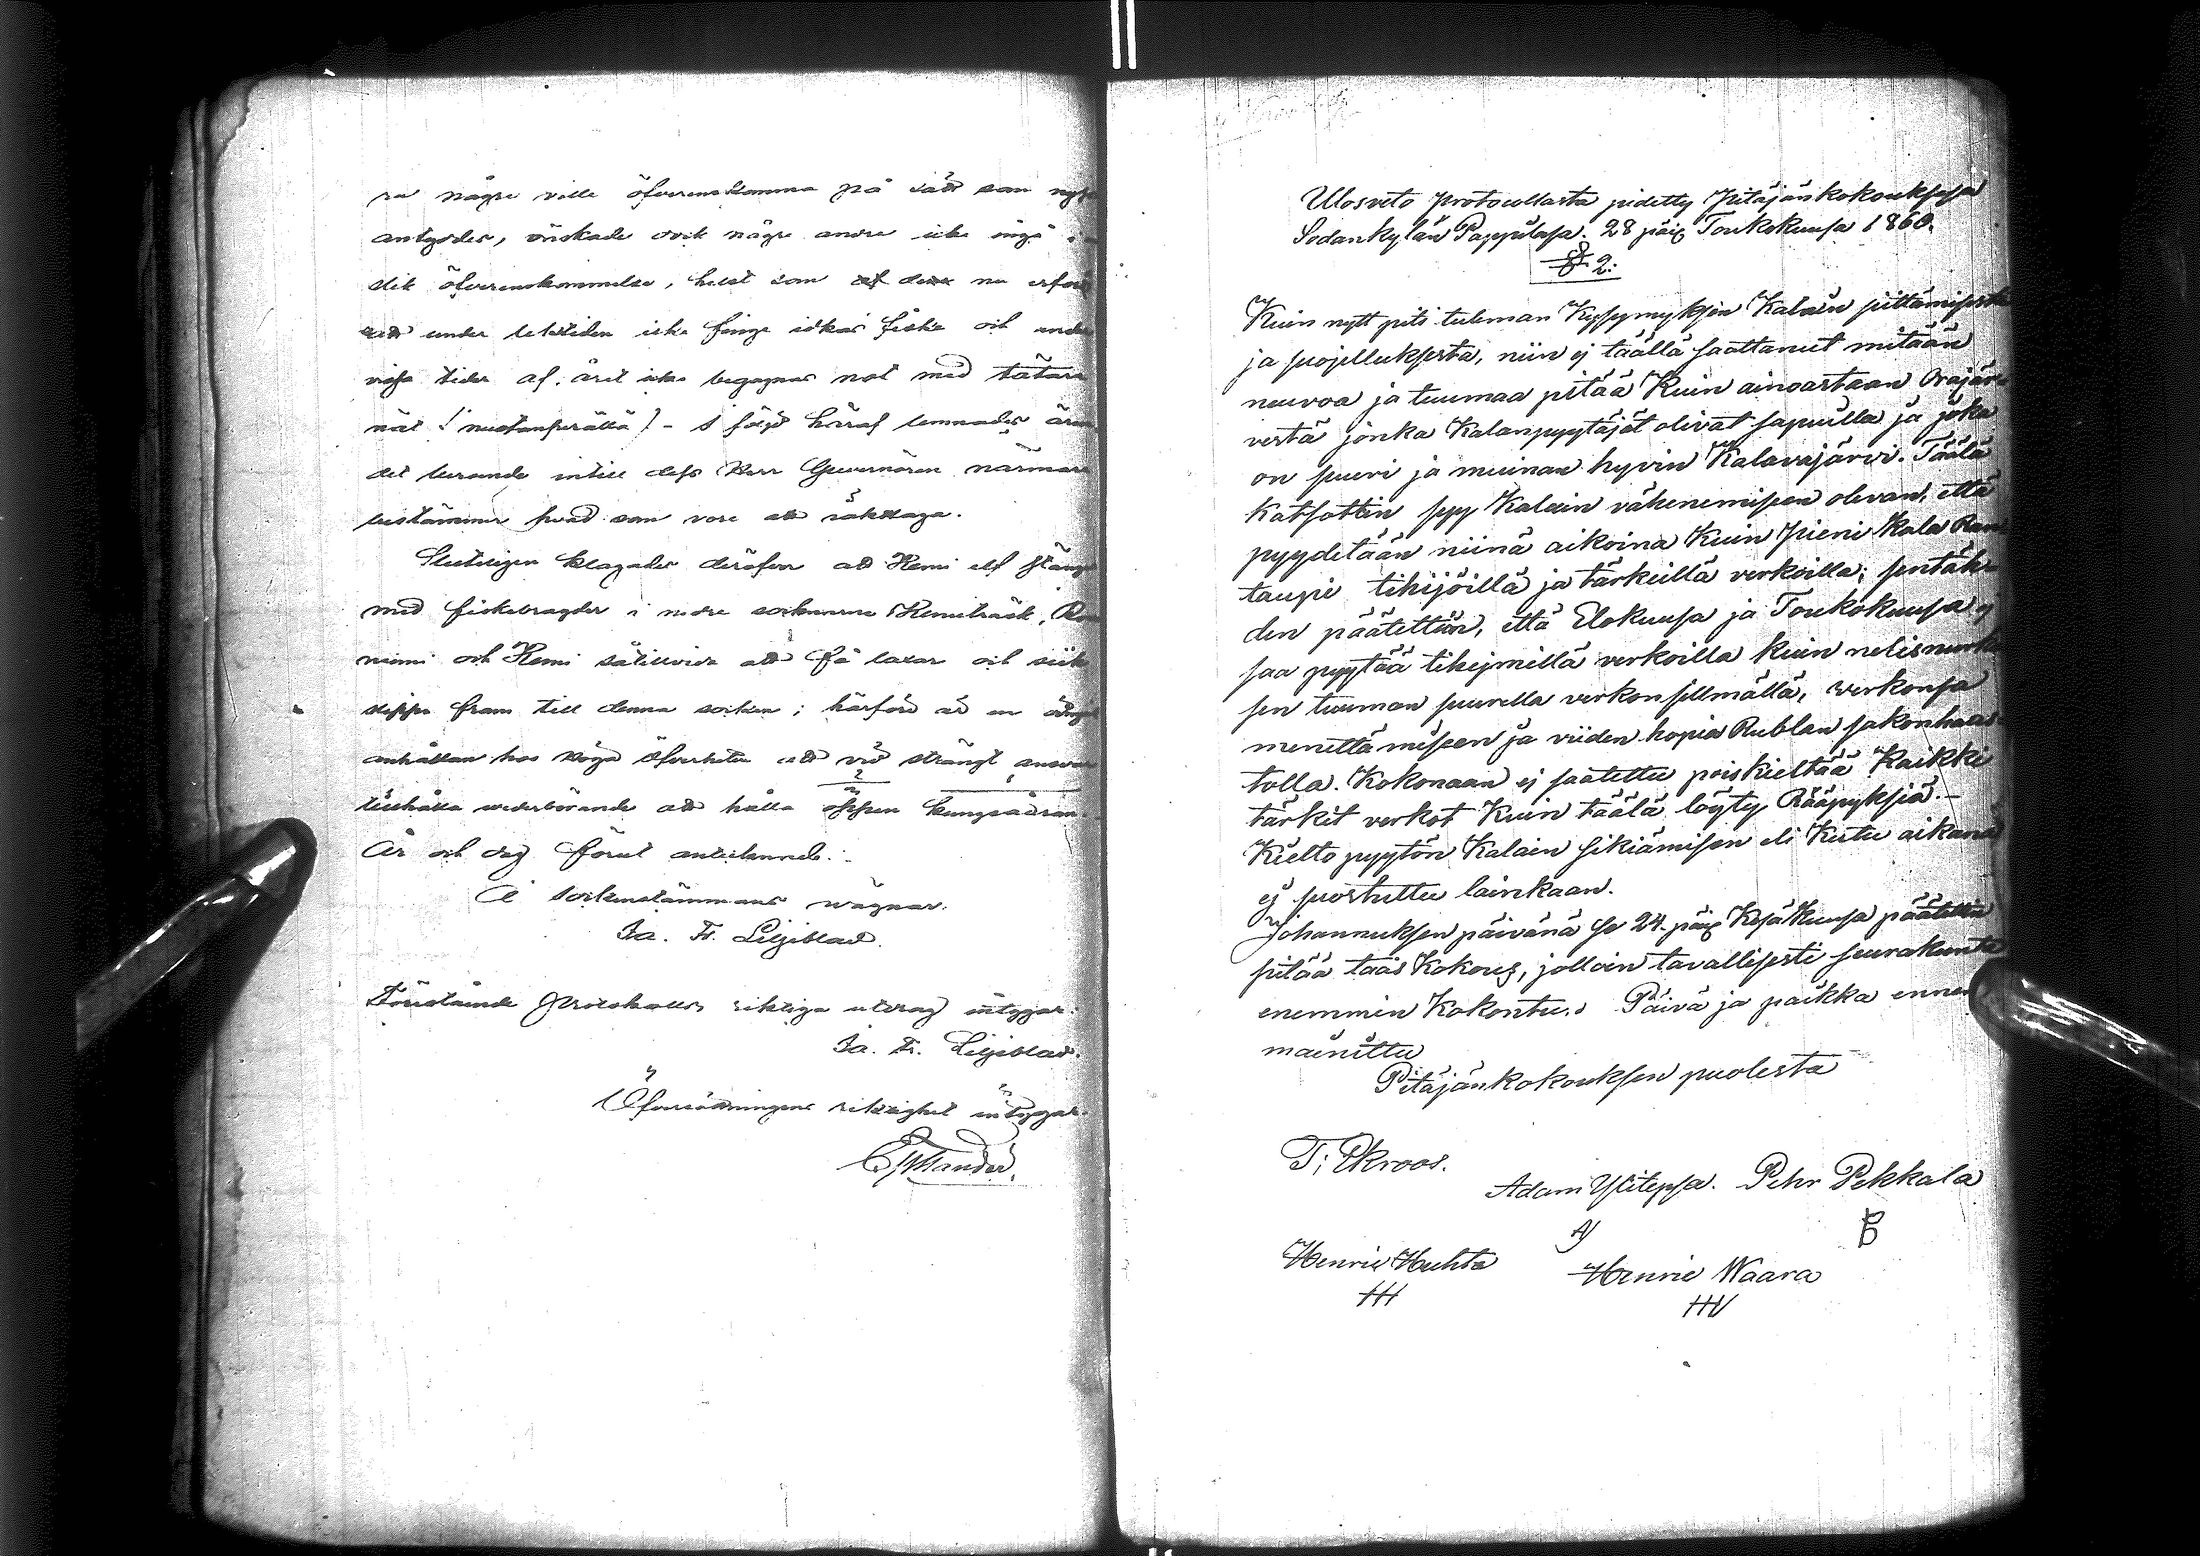 ra någre ville öfverenskomma på sätt som nyss
antyddes, önskade dock någre andre icke ingå i
slik öfverenskommelse, helst som de nu erfor
att under lektiden icke finge idkas fiske och under
vissa tider af året icke begagnas not med tätare
nät (nuotanperällä) - I följd häraf lemnades ären
det beroende intill dess Herr Guvernören närmare
bestämmer hvad som vore att iakttaga.
Slutligen klagades deröfver att Kemi elf stängs
med fiskebragder i nedre socknarne Kemiträsk, Ro
niemi och Kemi såtillvida att få laxar och siik
slippa fram till denna socken; härföre är en ödmj
anhållan hos Höga Öfverheten att vid strängt ansvar
tillhålla wederbörande att hålla öppen kungsådran.
År och dag förut antecknade.
På Sockenstämmans wägnar.
Ja. Fr. Liljeblad.
Förestående Protokolls riktiga utdrag intygar:
Ja. Fr. Liljeblad.
Öfversättningens riktighet intygar.
Ulosveto protocollasta pidetty Pitäjänkokouksesa
Sodankylän Pappilasa. 28 päiv Toukokuusa 1860.
§ 2:
Kuin nytt piti tuleman Kysymyksen Kalain siittämisestä
ja suojelluksesta, niin ej täällä saattanut mitään
neuvoa ja tuumaa pitää Kuin ainoastaan Orajär
vestä jonka Kalanpyytäjät olivat sapuilla ja joka
on suuri ja muinan hyvin Kalavajärvi. Täälä
Katsottin syy Kalain vähenemisen olevan, että
pyydetään niinä aikoina Kuin pieni Kala Ran
taupi tihijöillä ja tärkeillä verkoilla; sentäh
den päätettiin, että Elokuusa ja Toukokuusa ej
saa pyytää tihejmillä verkoilla kuin nelisnurk
sen tuuman suurella verkonsilmällä, werkonsa
menettämiseen ja viiden hopia Rublan sakonhaas
tolla. Kokonaan ej saatettu poiskieltää Kaikki
tärkit verkot Kuin täälä löyty Rääpyksiä.-
Kielto pyytön Kalain sikiämisen eli Kutu aikana
ej suostuttu lainkaan.
Johannuksen päivänä se 24. päiv Kesäkuusa päätettin
pitää taas Kokous, jolloin tavallisesti seurakunta
enemmin Kokontuu. Päivä ja paikka ennen
mainittu
Pitäjänkokouksen puolesta
T; Ekroos.
Adam Ylitepsa. Pehr Pekkala
Henric Huhta
Henric Waara
HH
HW